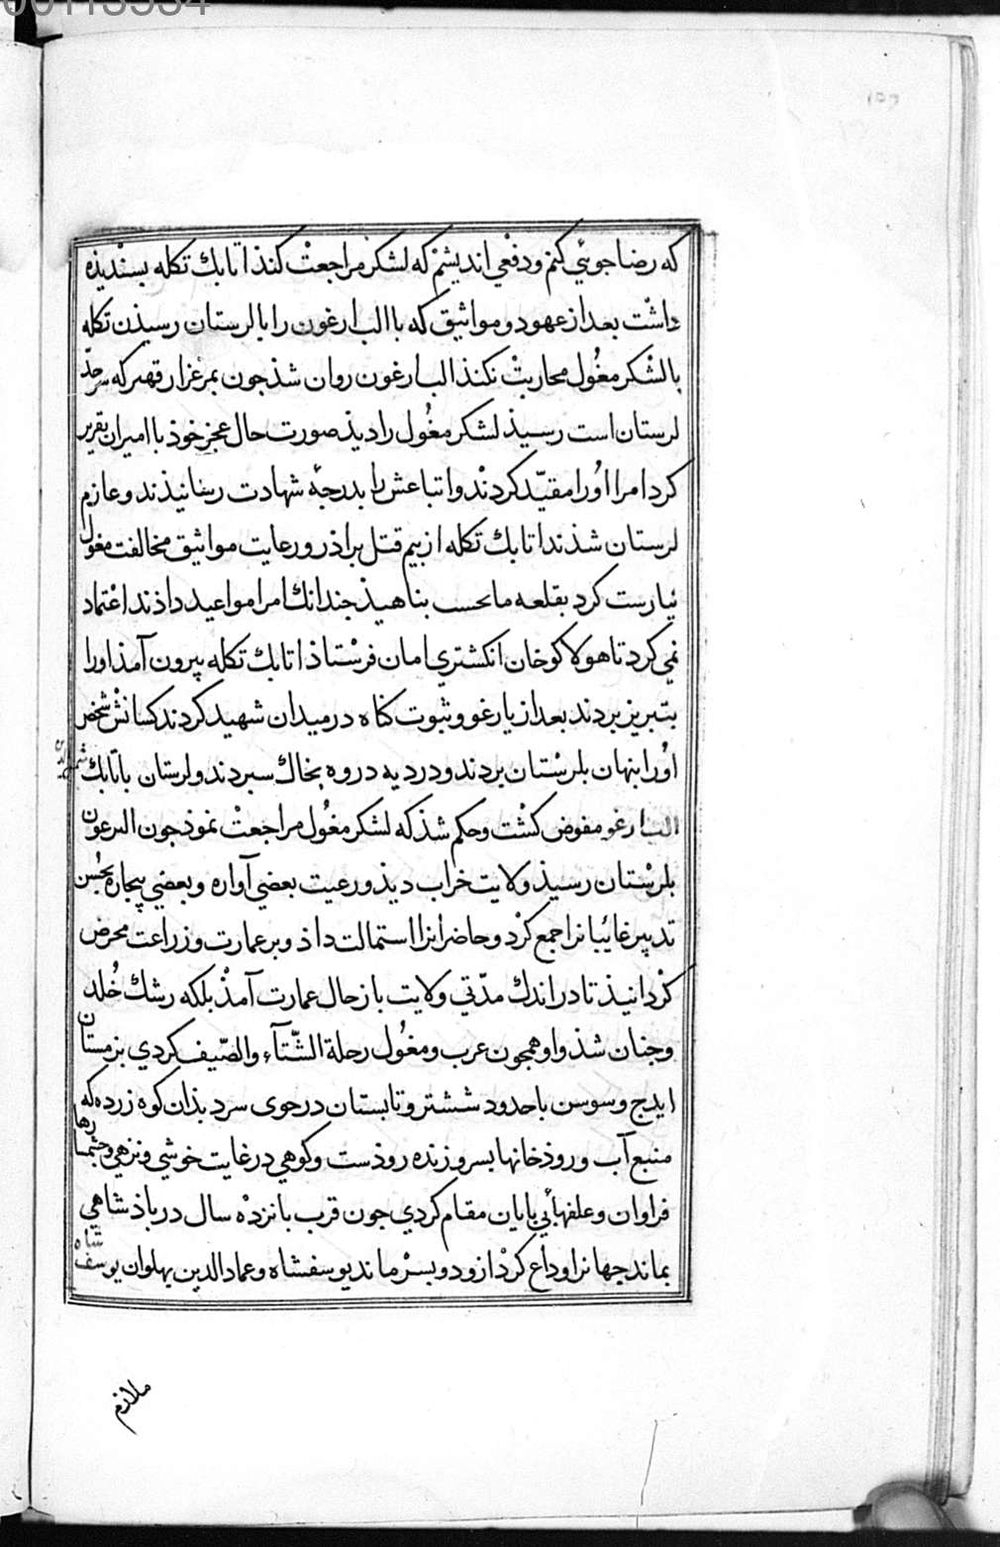 00113534
که رضا جوئی کنم و دفعی اندیشم که لشکر مراجعت کنذ اتابك تکله بسندیذه
داشت بعد از عهود و مواثیق که با الب ارغون را با لرستان رسیذن تکله
با لشکر مغول محاربت نکند الب ارغون روان شذ جون بمرغزار قهر که سرحدّ
لرستان است رسیذ لشکر مغول را دیذ صورت حال عجز خوذ با امیران تقریر
کرد امرا اورا مقیّد کردند و اتباعش را بدرجهٔ شهادت رسانیذند و عازم
لرستان شذند اتابك تکله از بیم قتل براذر و رعایت مواثیق مخالفت مغول
نیارست کرد بقلعه مانحست بناهیذ جندانك امرا مواعید داذند اعتماد
نمی کرد تا هولاکوخان انکشتری امان فرستاذ اتابك تکله بیرون آمذ اورا
بتبریز بردند بعد از یارغو و ثبوت کناه در میدان شهید کردند کسانش شخص
اورا بنهان بلرستان بردند و در دیه دروه بخاك سبردند و لرستان باتابك شمس الدین
الب ارغو مفوض کشت و حکم شذ که لشکر مغول مراجعت نموذ جون الب رغون
بلرستان رسیذ ولایت خراب دیذ و رعیت بعضی آواره و بعضی بیجاره بحُسن
تدبیر غائبانرا جمع کرد و حاضرانرا استمالت داذ و بر عمارت و زراعت محرض
کردانیذ تا در اندك مدّتی ولایت باز حال عمارت آمذ بلکه رشك خُلد
و جنان شذ و او همجون عرب و مغول رحلة الشّتآء والصّیف کردی بزمستان
ایدج و سوسن با حدود ششتر و تابستان در جوی سرد بذان کوه زرده که
منبع آب و روذخانها بسر و زنده روذست و کوهی در غایت خوشی و نزهی و جشمها
فراوان و علفهائی بایان مقام کردی جون قرب بانزده سال در باذشاهی
بماند جهانرا وداع کرد ازو دو بسر ماند یوسفشاه و عمادالدین بهلوان یوسف شاه
ملازم